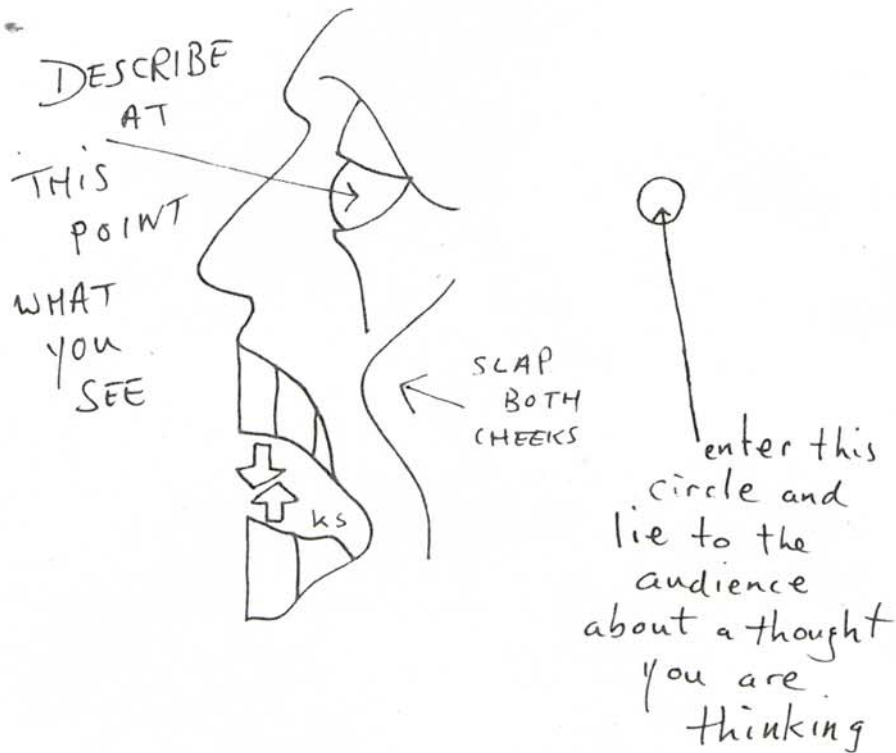 DESCRIBE
AT
THIS
POINT
WHAT
YOU
SEE
SLAP
BOTH
CHEEKS
ks
enter this
circle and
lie to the
audience
about a thought
you are
thinking